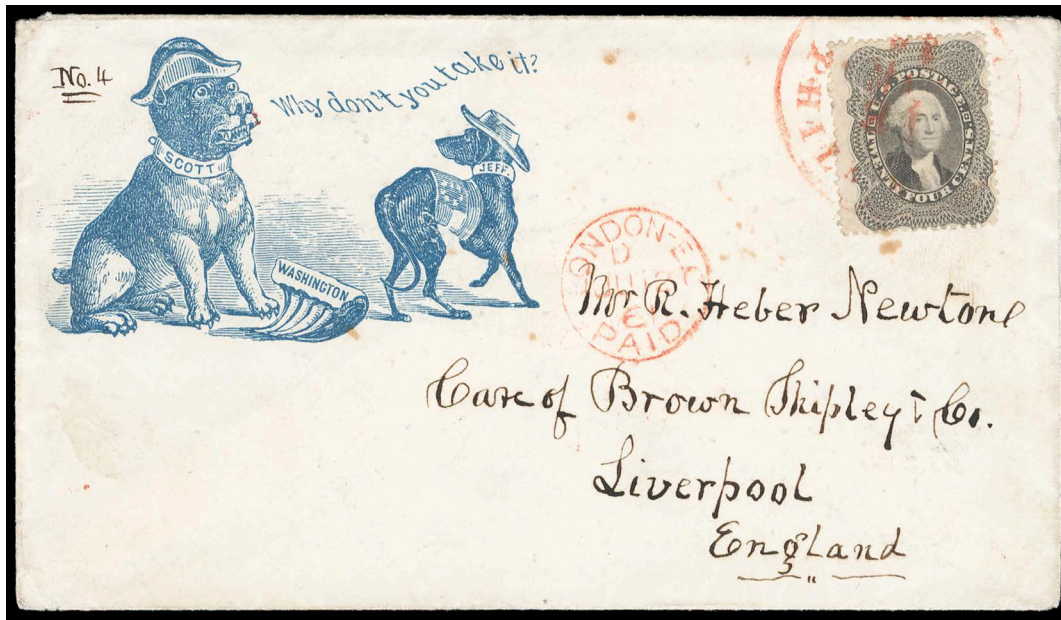 No. 4
Why don't you take it?
SCOTT
JEFF.
WASHINGTON
PHI
U.S. POSTAGE
TWENTY FOUR CENTS.
LONDON-E.C
D
E
PAID
Mr R. Heber Newton
Care of Brown Shipley & Co.
Liverpool
England